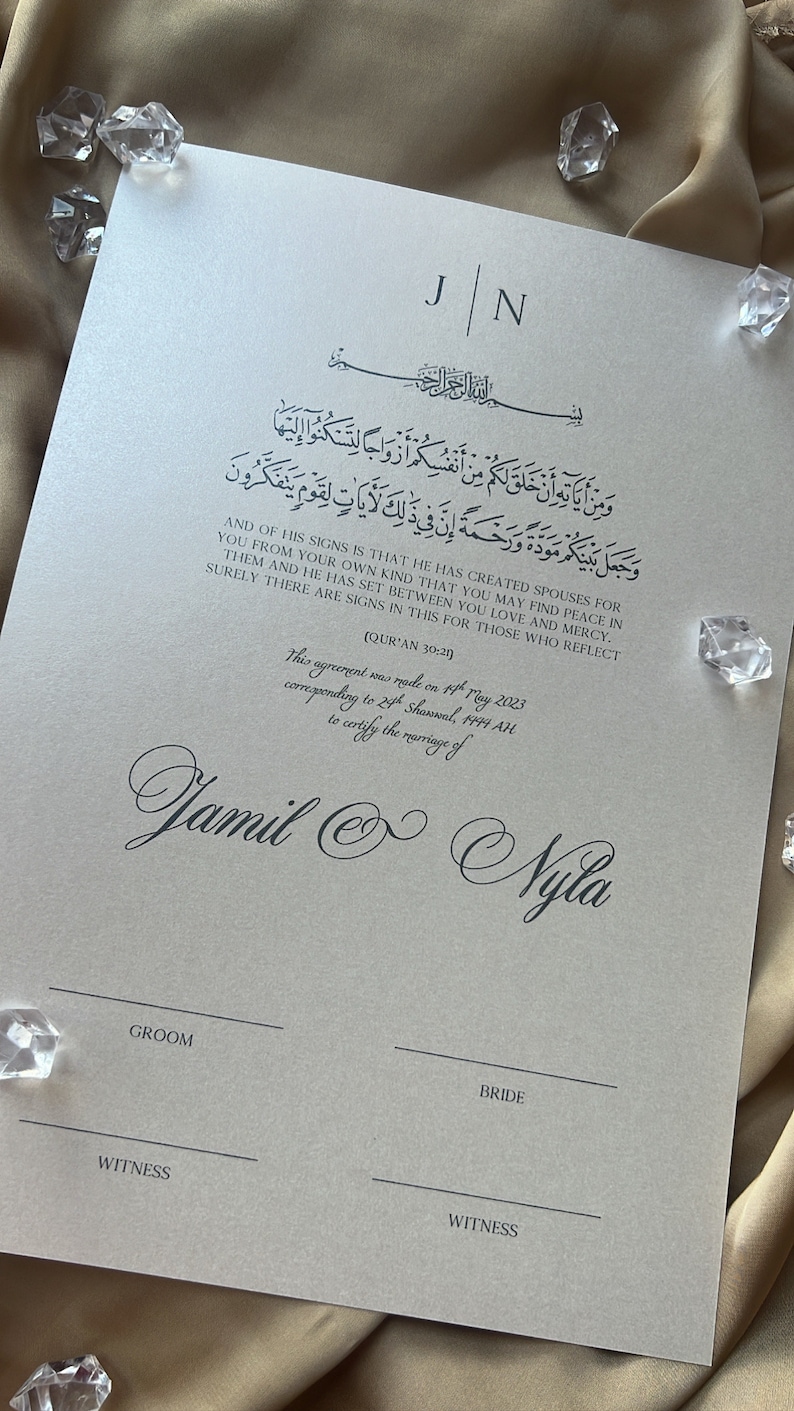 J | N
بِسْمِ اللَّهِ الرَّحْمَنِ الرَّحِيمِ
وَمِنْ أَيَاتِهِ أَنْ خَلَقَ لَكُمْ مِنْ أَنْفُسِكُمْ أَزْوَاجًا لِتَسْكُنُوا إِلَيْهَا
وَجَعَلَ بَيْنَكُمْ مَوَدَّةً وَرَحْمَةً إِنَّ فِي ذَٰلِكَ لَأَيَاتٍ لِقَوْمٍ يَتَفَكَّرُونَ
AND OF HIS SIGNS IS THAT HE HAS CREATED SPOUSES FOR
YOU FROM YOUR OWN KIND THAT YOU MAY FIND PEACE IN
THEM AND HE HAS SET BETWEEN YOU LOVE AND MERCY.
SURELY THERE ARE SIGNS IN THIS FOR THOSE WHO REFLECT
(QUR'AN 30:21)
This agreement was made on 14th May 2023
corresponding to 24th Shawwal, 1444 AH
to certify the marriage of
Jamil & Nyla
GROOM
BRIDE
WITNESS
WITNESS